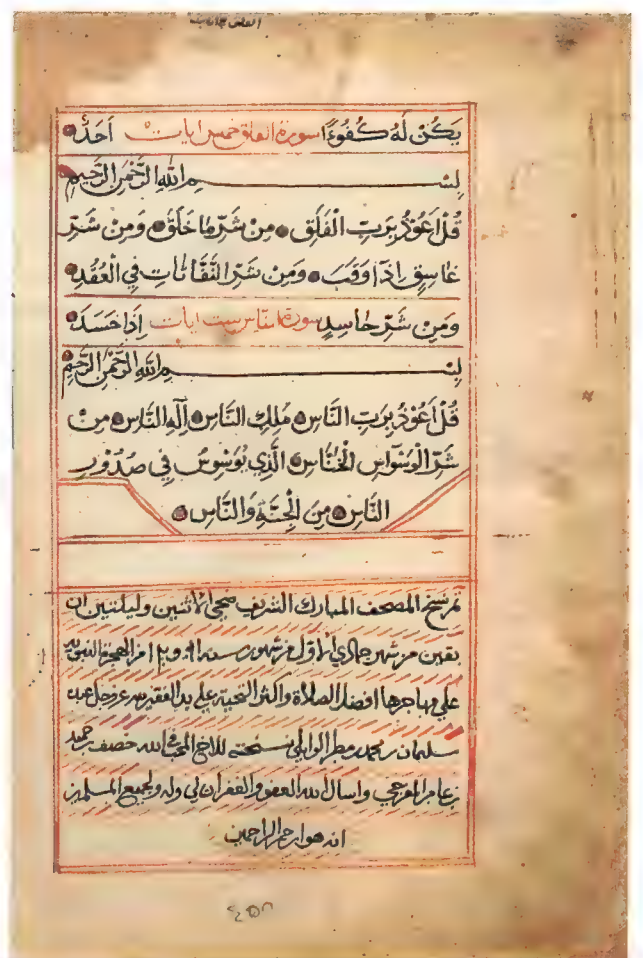 يَكُنْ لَهُ كُفُوًءا سورة الفلق خمس ايات اَحَدٌ
بِسْمِ اللهِ الرَّحْمٰنِ الرَّحِيمِ
قُلْ اَعُوْذُ بِرَبِّ الْفَلَقِ مِنْ شَرِّ مَا خَلَقَ وَمِنْ شَرِّ
غَاسِقٍ اِذَا وَقَبَ وَمِنْ شَرِّ النَّفَّاثَاتِ فِي الْعُقَدِ
وَمِنْ شَرِّ حَاسِدٍ سورة الناس ست ايات اِذَا حَسَدَ
بِسْمِ اللهِ الرَّحْمٰنِ الرَّحِيمِ
قُلْ اَعُوْذُ بِرَبِّ النَّاسِ مَلِكِ النَّاسِ اِلٰهِ النَّاسِ مِنْ
شَرِّ الْوَسْوَاسِ الْخَنَّاسِ الَّذِي يُوَسْوِسُ فِي صُدُوْرِ
النَّاسِ مِنَ الْجِنَّةِ وَالنَّاسِ
تم نسخ المصحف المبارك الشريف ضحى الاثنين وليلتين ان
بقين من شهر جمادي الاول من شهور سنه من الهجرة النبويه
على مهاجرها افضل الصلاة واكثر التحية على يد الفقير لله عز وجل عبده
سليمان بن محمد مطر الوايلي نسخته للاخ المحب في الله خصف حميد
بن عامر المفرجي واسال الله العفو والغفران لي وله ولجميع المسلمين
انه هو ارحم الراحمين